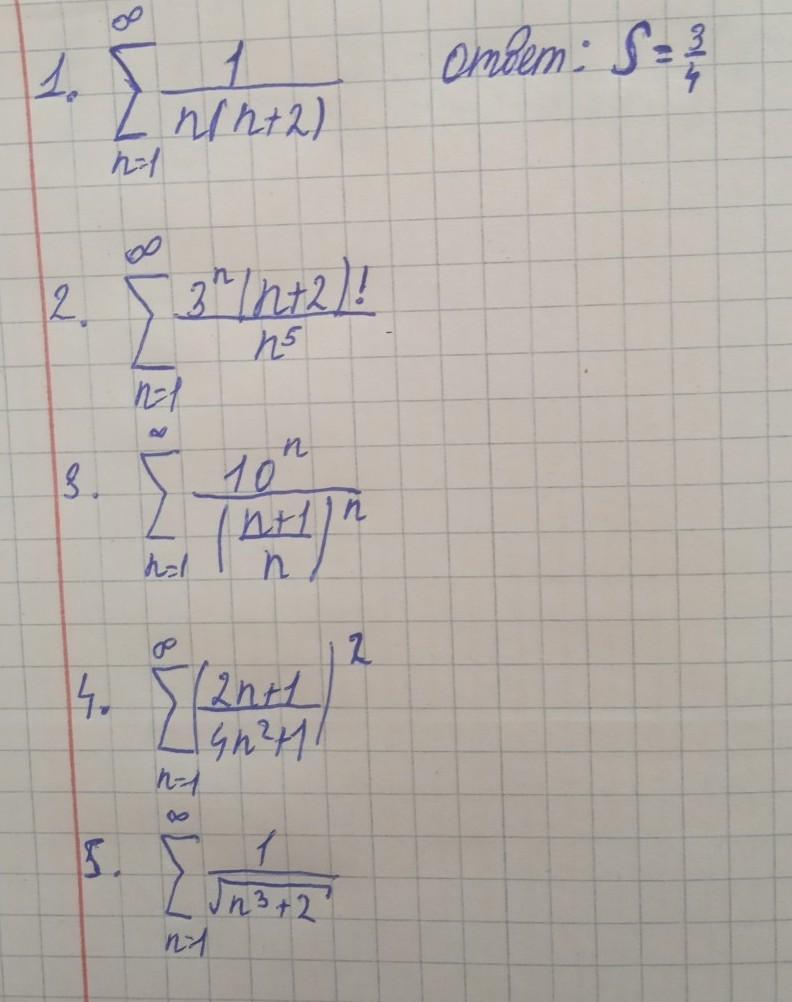 1. ∑_{n=1}^{∞} 1/(n(n+2)) ответ: S = 3/4
2. ∑_{n=1}^{∞} 3^n(n+2)!/n^5
3. ∑_{n=1}^{∞} 10^n/((n+1)/n)^n
4. ∑_{n=1}^{∞} ((2n+1)/(4n^2+1))^2
5. ∑_{n=1}^{∞} 1/√(n^3+2)